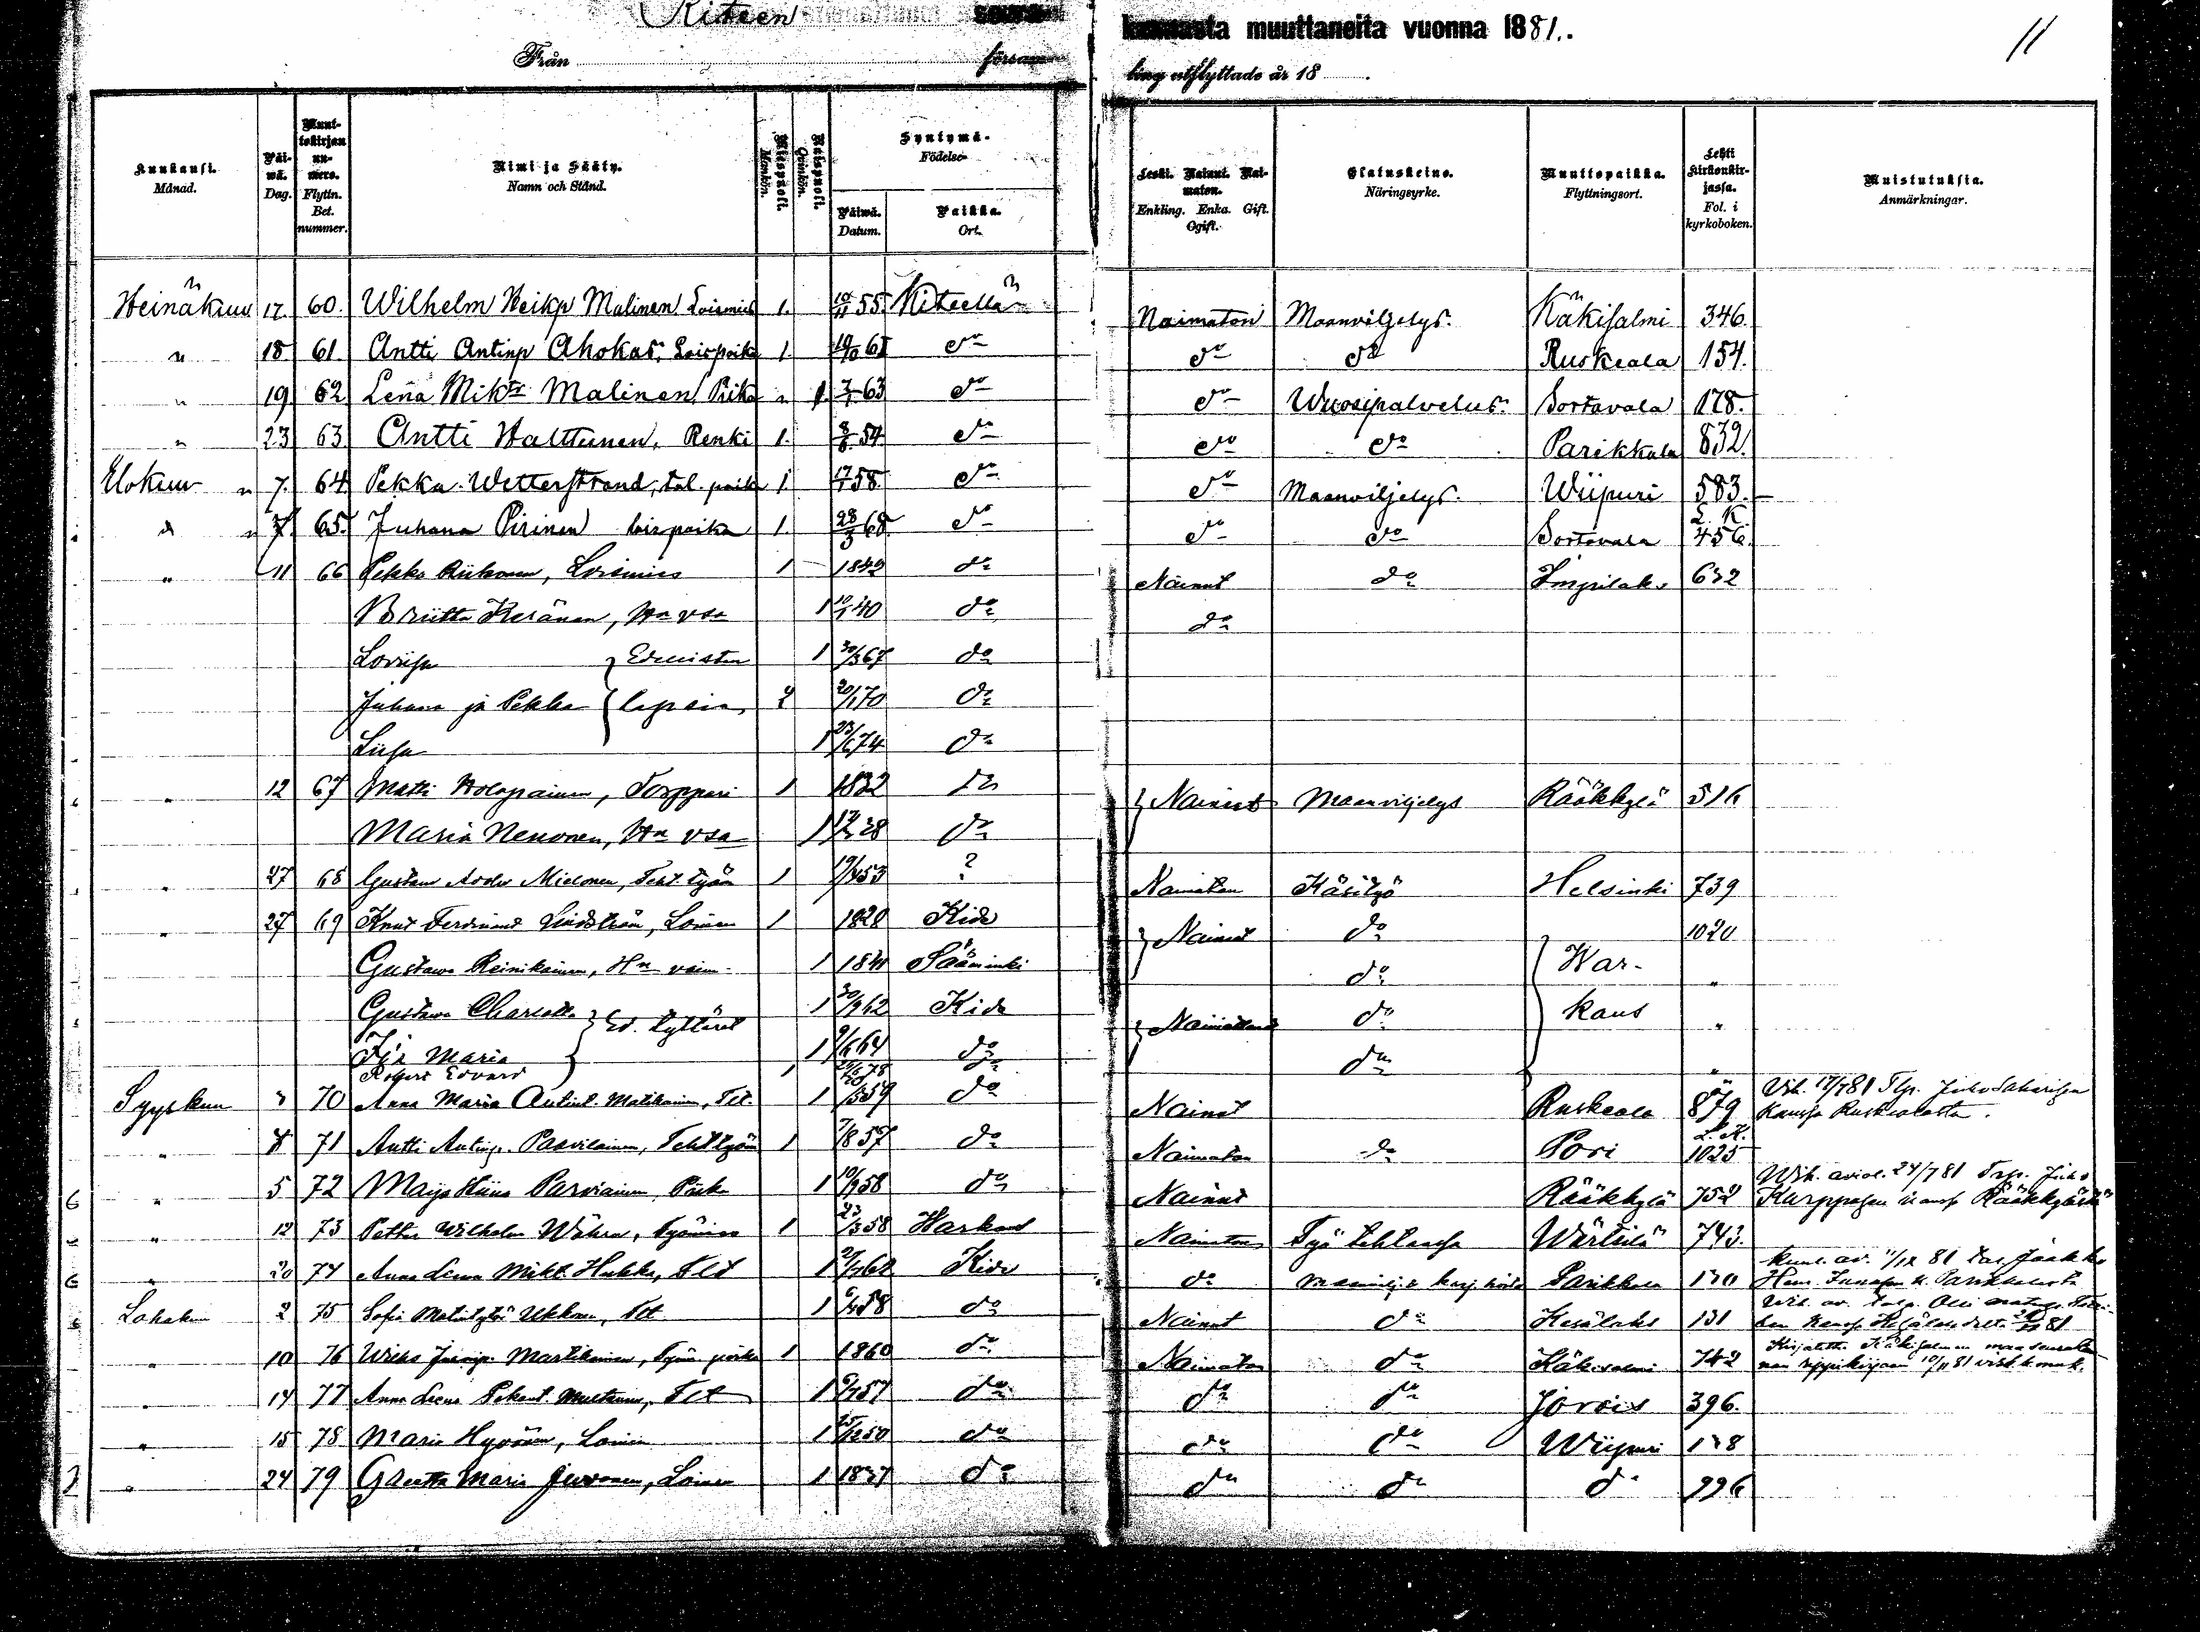 Kiteen seura-
kunnasta muuttaneita vuonna 1881.
11
Från försam-
ling utflyttade år 18 .
Kuukausi. Månad.
Päi-wä. Dag.
Muut-tokirjan nu-mero. Flyttn. Bet. nummer.
Nimi ja Sääty. Namn och Stånd.
Miespuoli. Mankön.
Naispuoli. Qvinkön.
Syntymä- Födelse-
Päiwä. Datum.
Paikka. Ort.
Leski. Nainut. Nai-maton. Enkling. Enka. Gift. Ogift.
Elatuskeino. Näringsyrke.
Muuttopaikka. Flyttningsort.
Lehti kirkonkir-jassa. Fol. i kyrkoboken.
Muistutuksia. Anmärkningar.
Heinäkuu 17. 60. Wilhelm Heikp Malinen Loismies 1. 55 Kiteellä Naimaton Maanviljelys. Käkisalmi 346.
" 18 61. Antti Antinp Ahokas, Loispoika 1. do do do Ruskeala 154.
" 19 62 Lena Mikt Malinen Piika " 1. 63 do do Wuosipalvelus. Sortavala 178.
" 23 63 Antti Halttunen, Renki 1. 54 do do do Parikkala 832.
Elokuu 7. 64 Pekka Wetterstrand, tal. poika 1. 58 do do Maanviljelys. Wiipuri 583.
" 7 65. Juhana Pirinen loispoika 1. 28/3 68 do do do Sortavala L. K. 456.
" 11 66 Pekka Riikonen, Loismies 1 1842 do Nainut do Impilaks 632
Briitta Keränen, Hn vsa 1 40 do do
Loviisa Edellisten 1 30/3 67 do
Juhana ja Pekka lapsia 2 20/1 70 do
Liisa 1 23/6 74 do
" 12 67 Matti Holopainen, Torppari 1 1832 do Nainut Maanviljelys Rääkkylä 516
Maria Nenonen, Hn vsa 1 28 do
" 27 68 Gustaw Adolw Mielonen, Teht työm 1 19/4 53 ? Naimaton Käsityö Helsinki 739
" 27 69 Knut Ferdinand Lindström, Loinen 1 1828 Kide Nainut do 1020
Gustawa Reinikainen, Hn vaim. 1 Sääminki do War- "
Gustawa Charlotta Ed. tyttäret 1 30/9 62 Kide Naimattomat do kaus "
Ida Maria 1 9/6 64 do do "
Robert Edvard 1
Syyskuu 3 70 Anna Maria Antint. Matikainen, Tlt. 1 59 do Nainut Ruskeala 879 Vih. 17/7 81 Tlp. Juho Sakarisen
kanssa Ruskealasta.
" 71 Antti Antinp. Paavilainen, Teht työm 1 7/8 57 do Naimaton do Pori L. K. 1025
" 5 72 Maija Stiina Parviainen, Piika 1 10/9 58 do Nainut Rääkkylä 752 Wih. aviol. 24/7 81 Trp. Juho
Karppasen kanss Rääkkylästä
" 12 73 Petter Wilhelm Währa, Työmies 1 23/3 58 Warkaus Naimaton Työ tehtaassa Wärtsilä 743.
" 20 74 Anna Leena Mikt. Hukka, Tlt 1 Kide do Parikkala 170 Kuul. av. 81 tal Jaakko
Lokakuu 2 75 Sofia Matintytär Ukkonen, Tlt 1 58 do Nainut do Kesälaks 131 Wih. av. talp. Olli
" 10 76 Martikainen, Työm. poika 1 1860 do Naimaton do Käkisalmi 742 Kirjatettu Käkisalmen maaseurakun
nan rippikirjaan 10/11 81
" 14 77 Anna Leena Pekant. Multanen, Tlt 1 57 do do do Jorois 396.
" 15 78 Maria Hyvönen, Loinen 1 25/12 50 do do do Wiipuri 178
" 24 79 Greetta Maria Juvonen, Loinen 1 1837 do do do do 996